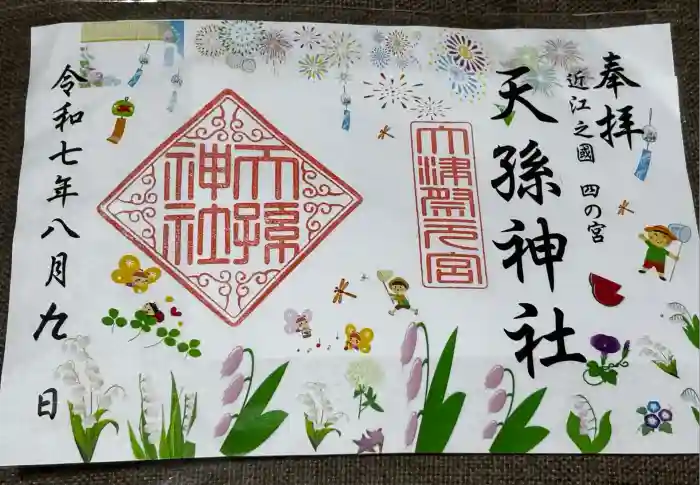 奉拝
近江之國 四の宮
天孫神社
大津祭元宮
天孫
神社
令和七年八月九日